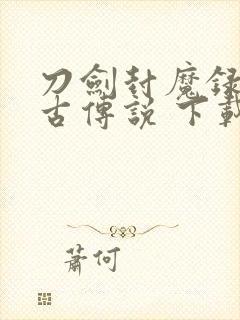 刀劍封魔録
古傳説 下載
蕭何